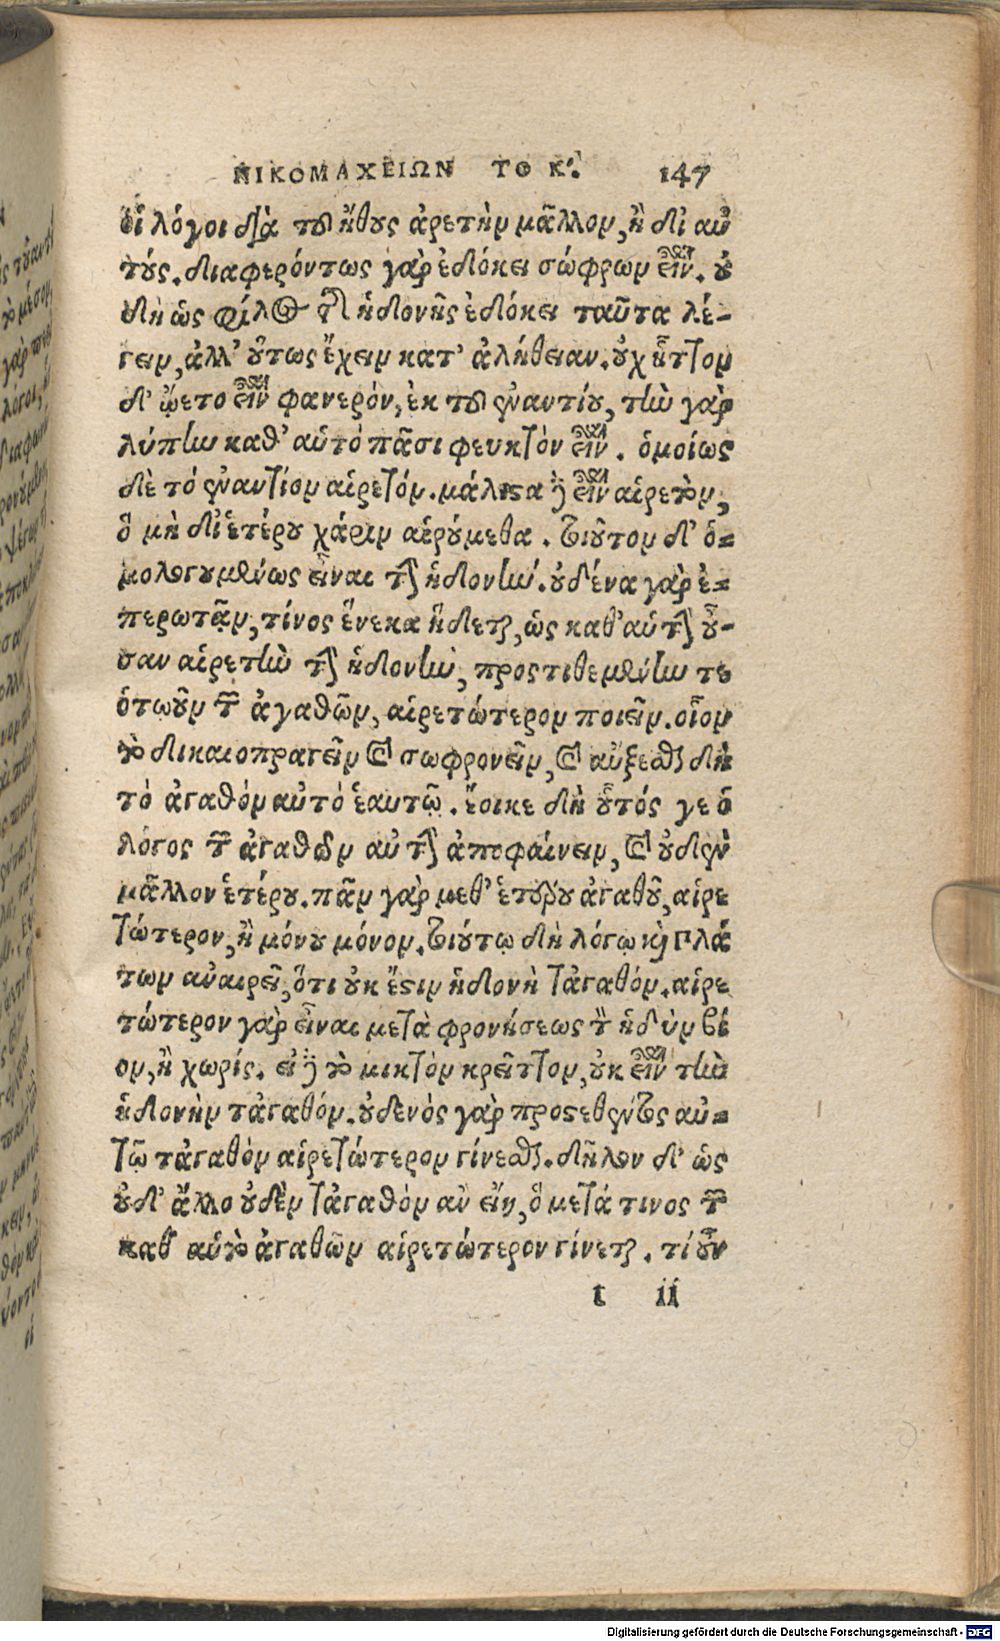 ΝΙΚΟΜΑΧΕΙΩΝ ΤΟ Κ. 147
οἱ λόγοι διὰ τοῦ ἤθους ἀρετὴν μᾶλλον, ἢ δι' αὐ
τούς. διαφερόντως γὰρ ἐδόκει σώφρων εἶναι. οὐ
δὴ ὡς φίλος τῆς ἡδονῆς ἐδόκει ταῦτα λέ-
γειν, ἀλλ' οὕτως ἔχειν κατ' ἀλήθειαν. οὐχ ἧττον
δ' ᾤετο εἶναι φανερόν, ἐκ τοῦ ἐναντίου, τὴν γὰρ
λύπην καθ' αὑτὸ πᾶσι φευκτὸν εἶναι. ὁμοίως
δὲ τὸ ἐναντίον αἱρετόν. μάλιστα δ' εἶναι αἱρετὸν,
ὃ μὴ δι' ἑτέρου χάριν αἱρούμεθα. τοιοῦτον δ' ὁ-
μολογουμένως εἶναι τὴν ἡδονήν. οὐδένα γὰρ ἐ-
περωτᾷν, τίνος ἕνεκα ἥδεται, ὡς καθ' αὑτὴν οὖ-
σαν αἱρετὴν τὴν ἡδονήν, προστιθεμένην τε
ὁτῳοῦν τῶν ἀγαθῶν, αἱρετώτερον ποιεῖν. οἷον
τὸ δικαιοπραγεῖν καὶ σωφρονεῖν, καὶ αὔξεσθαι δὴ
τὸ ἀγαθὸν αὐτὸ ἑαυτῷ. ἔοικε δὴ οὗτός γε ὁ
λόγος τῶν ἀγαθῶν αὐτὴν ἀποφαίνειν, καὶ οὐδὲν
μᾶλλον ἑτέρου. πᾶν γὰρ μεθ' ἑτέρου ἀγαθοῦ, αἱρε
τώτερον, ἢ μόνου μόνον. τοιούτῳ δὴ λόγῳ καὶ πλά
των ἀναιρεῖ, ὅτι οὐκ ἔστιν ἡδονὴ τἀγαθόν. αἱρε
τώτερον γὰρ εἶναι μετὰ φρονήσεως τὸν ἡδὺν βί
ον, ἢ χωρίς. εἰ δὲ τὸ μικτὸν κρεῖττον, οὐκ εἶναι τὴν
ἡδονὴν τἀγαθόν. οὐδενὸς γὰρ προστεθέντος αὐ-
τῷ τἀγαθὸν αἱρετώτερον γίνεσθαι. δῆλον δ' ὡς
οὐδ' ἄλλο οὐδὲν τἀγαθὸν ἂν εἴη, ὃ μετά τινος τῶν
καθ' αὑτὸ ἀγαθῶν αἱρετώτερον γίνεται. τί οὖν
t ii
Digitalisierung gefördert durch die Deutsche Forschungsgemeinschaft - DFG